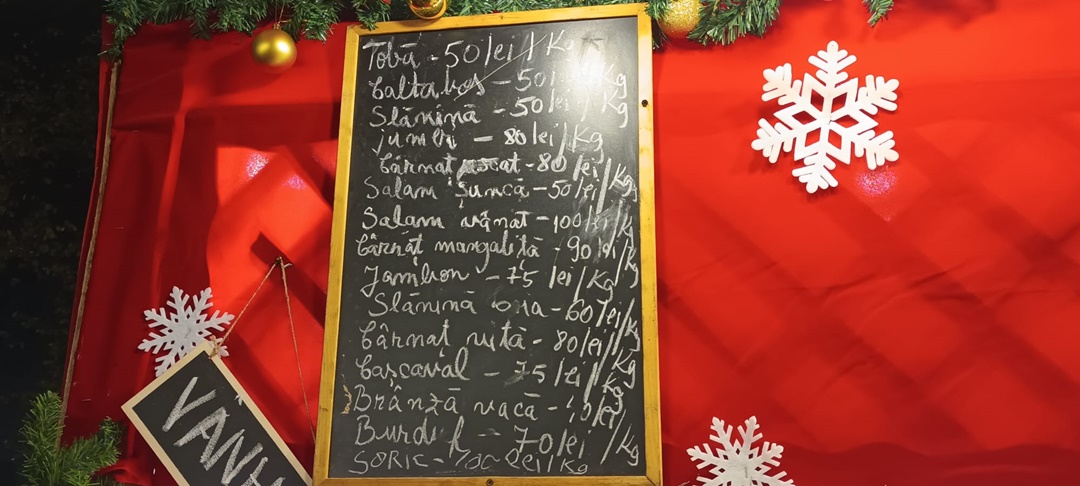 Tobă - 50 lei / Kg
Caltaboș - 50 lei / Kg
Slănină - 50 lei / Kg
jumări - 80 lei / Kg
Cârnat uscat - 80 lei / Kg
Salam șuncă - 50 lei / Kg
Salam vânat - 100 lei / Kg
Cârnaț mangaliță - 90 lei / Kg
Jambon - 75 lei / Kg
Slănină - 60 lei / Kg
Cârnaț vită - 80 lei / Kg
Cașcaval - 75 lei / Kg
Brânză vacă - lei
Burduf - 70 lei / Kg
SORIC - 100 lei / Kg
VAN